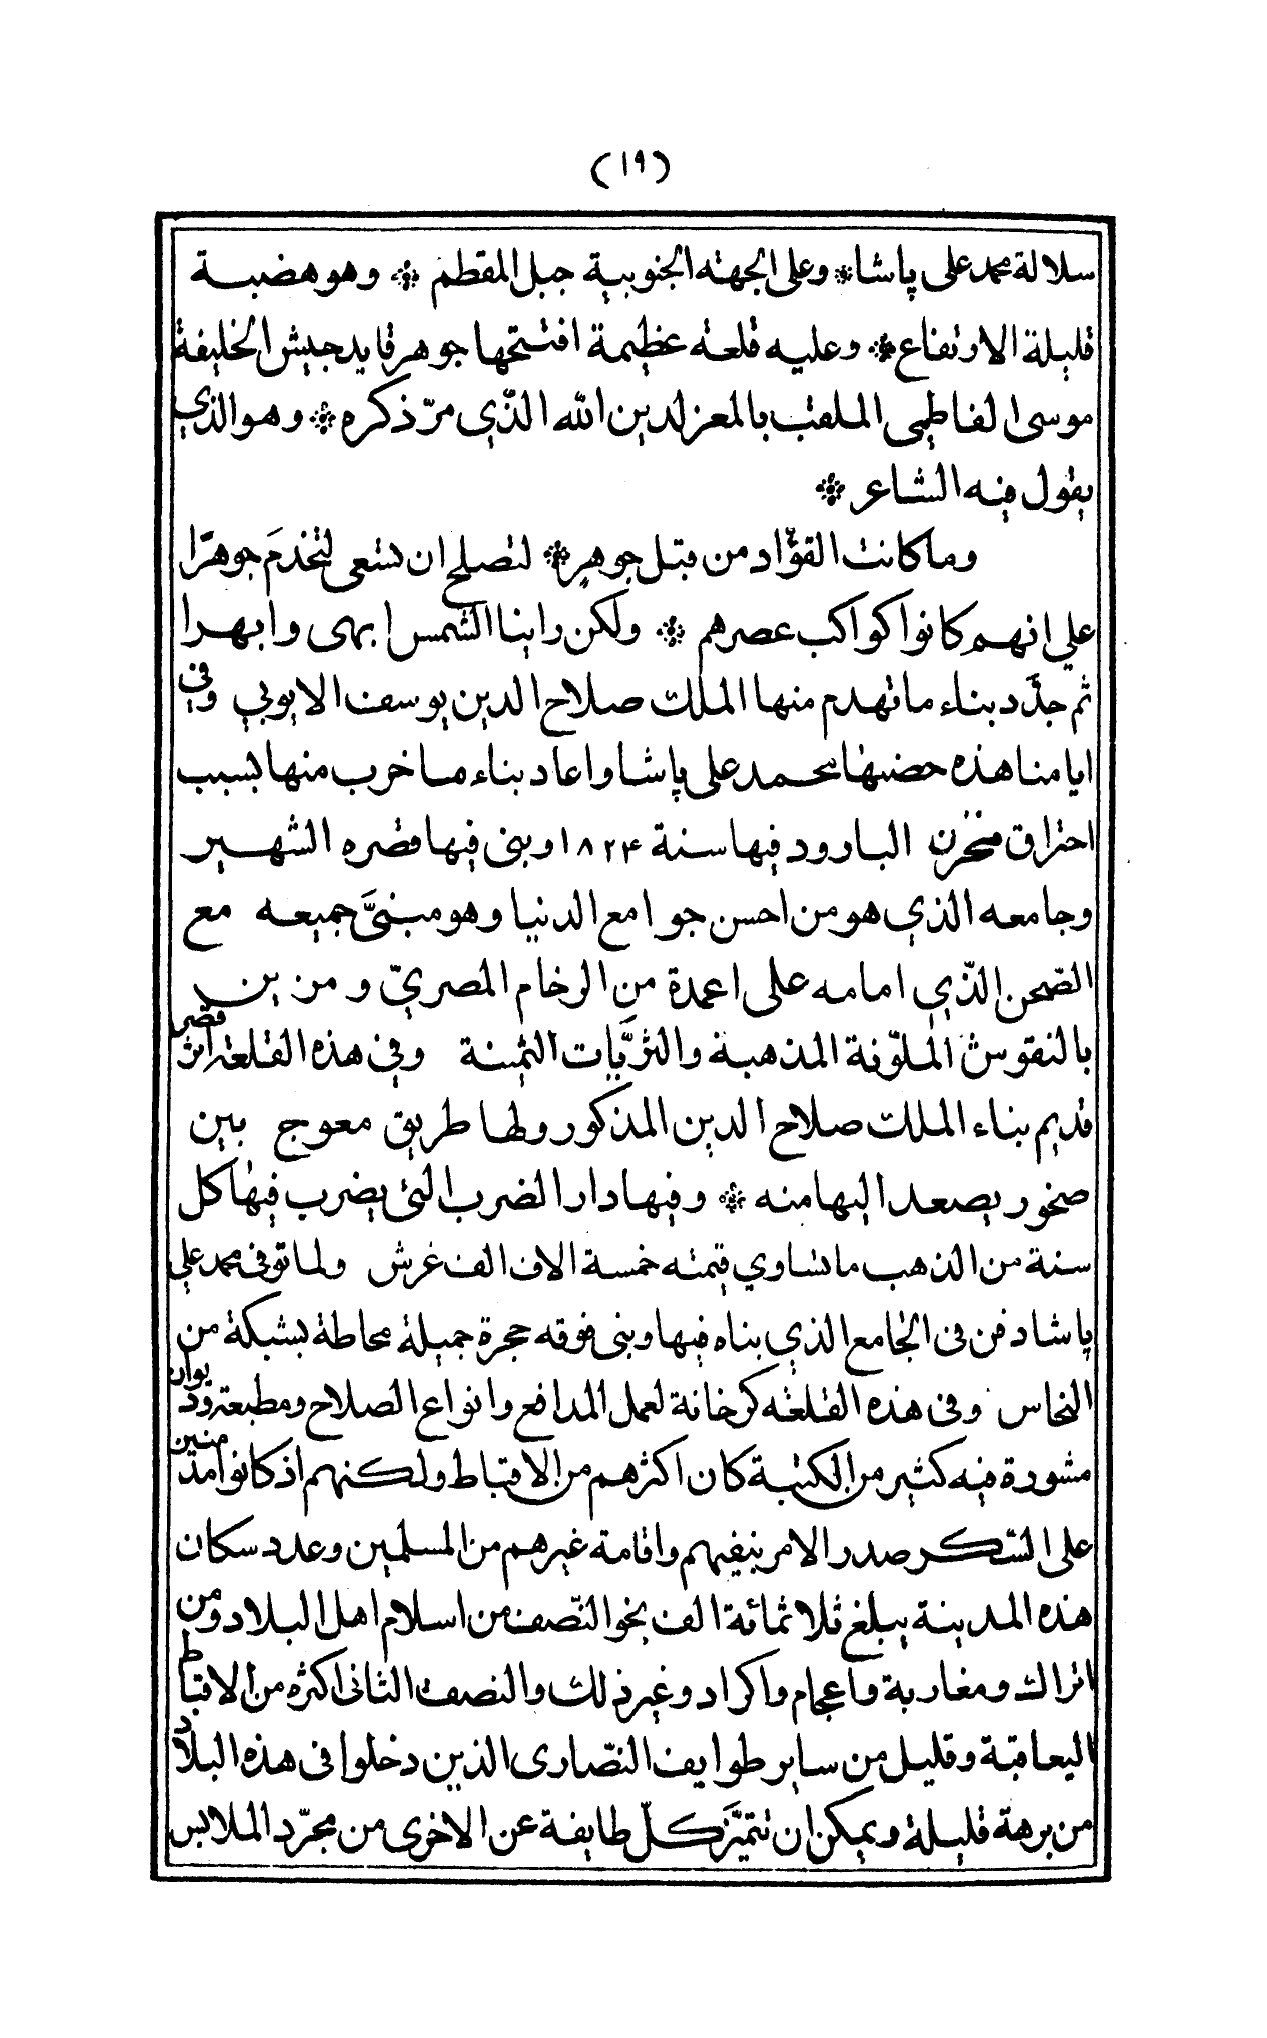 (١٩)
سلالة محمد علي پاشا * وعلى الجهته الجنوبية جبل المقطم * وهو هضبة
قليلة الارتفاع * وعليه قلعته عظيمة افتتحها جوهر قايد جيش الخليفة
موسى الفاطمي الملقب بالمعز لدين الله الذّي مرّ ذكره * وهو الذي
يقول فيه الشاعر *
وما كانت القوّاد من قبل جوهرٍ * لتصلح ان تسعى لتخدمَ جوهرّا
علي انهم كانوا كواكب عصرهم * ولكن راينا الشمس ابهى وابهرا
ثم جدَّد بناء ما تهدم منها الملك صلاح الدين يوسف الايوبي وفي
ايامنا هذه حصنها محمد علي پاشا واعاد بناء ما خرب منها بسبب
احتراق مخزن البارود فيها سنة ١٨٢٤ وبنى فيها قصره الشهير
وجامعه الذي هو من احسن جوامع الدنيا وهو مبنىَّ جميعه مع
الصّحن الذّي امامه على اعمدة من الرخام المصريّ ومزين
بالنقوش الملوّنة المذهبة والثريَّات الثمينة وفي هذه القلعته اثر قصر
قديم بناء الملك صلاح الدين المذكور ولها طريق معوج بين
صخور يصعد اليها منه * وفيها دار الضرب التي يضرب فيها كل
سنة من الذهب ما تساوي قيمته خمسة الاف الف غرش ولما توفى محمد علي
پاشا دفن فى الجامع الذي بناه فيها وبنى فوقه حجرة جميلة محاطة بشبكة من
النحاس وفى هذه القلعته كرخانة لعمل المدافع وانواع الصلاح ومطبعته وديوان
مشورة فيه كثير من الكتبة كان اكثرهم من الاقباط ولكنهم اذ كانوا مدمنين
على السّكر صدر الامر بنفيهم واقامة غيرهم من المسلمين وعدد سكان
هذه المدينة يبلغ ثلاثمائة الف نحو النّصف من اسلام اهل البلاد ومن
اتراك ومغاربة واعجام واكراد وغير ذلك والنصف الثانى اكثره من الاقباط
اليعاقبة وقليل من ساير طوايف النصّارى الذين دخلوا فى هذه البلاد
من برهة قليلة ويمكن ان تتميَّز كلّ طايفة عن الاخرى من مجرّد الملابس